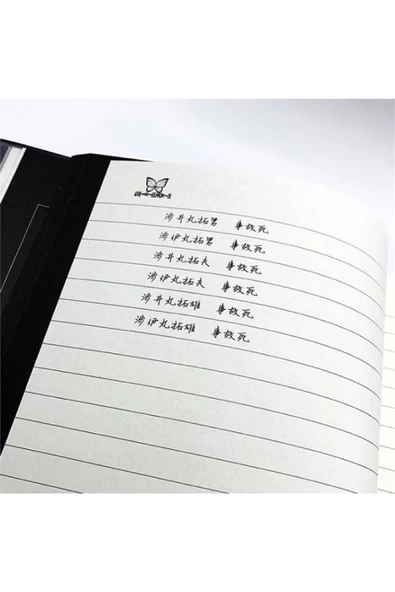 渋井丸拓男 事故死
渋伊丸拓男 事故死
渋井丸拓夫 事故死
渋伊丸拓夫 事故死
渋井丸拓雄 事故死
渋伊丸拓雄 事故死